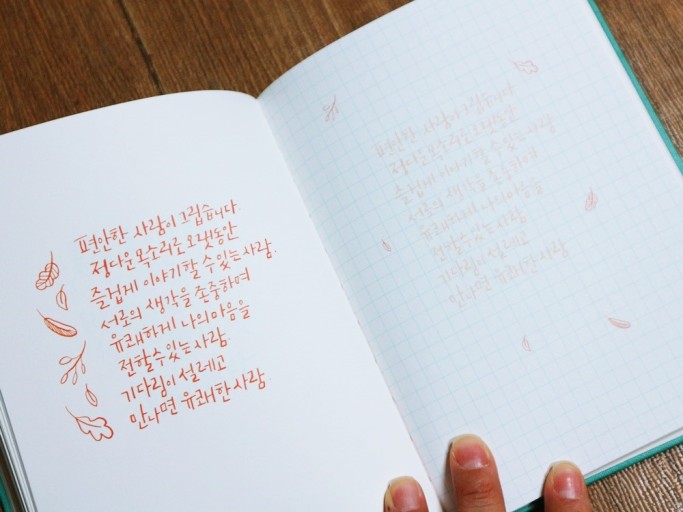 편안한 사람이 그립습니다.
정다운 목소리로 오랫동안
즐겁게 이야기할 수 있는 사람.
서로의 생각을 존중하며
유쾌하게 나의 마음을
전할 수 있는 사람.
기다림이 설레고
만나면 유쾌한 사람.
편안한 사람이 그립습니다.
정다운 목소리로 오랫동안
즐겁게 이야기할 수 있는 사람
서로의 생각을 존중하며
유쾌하게 나의 마음을
전할 수 있는 사람
기다림이 설레고
만나면 유쾌한 사람